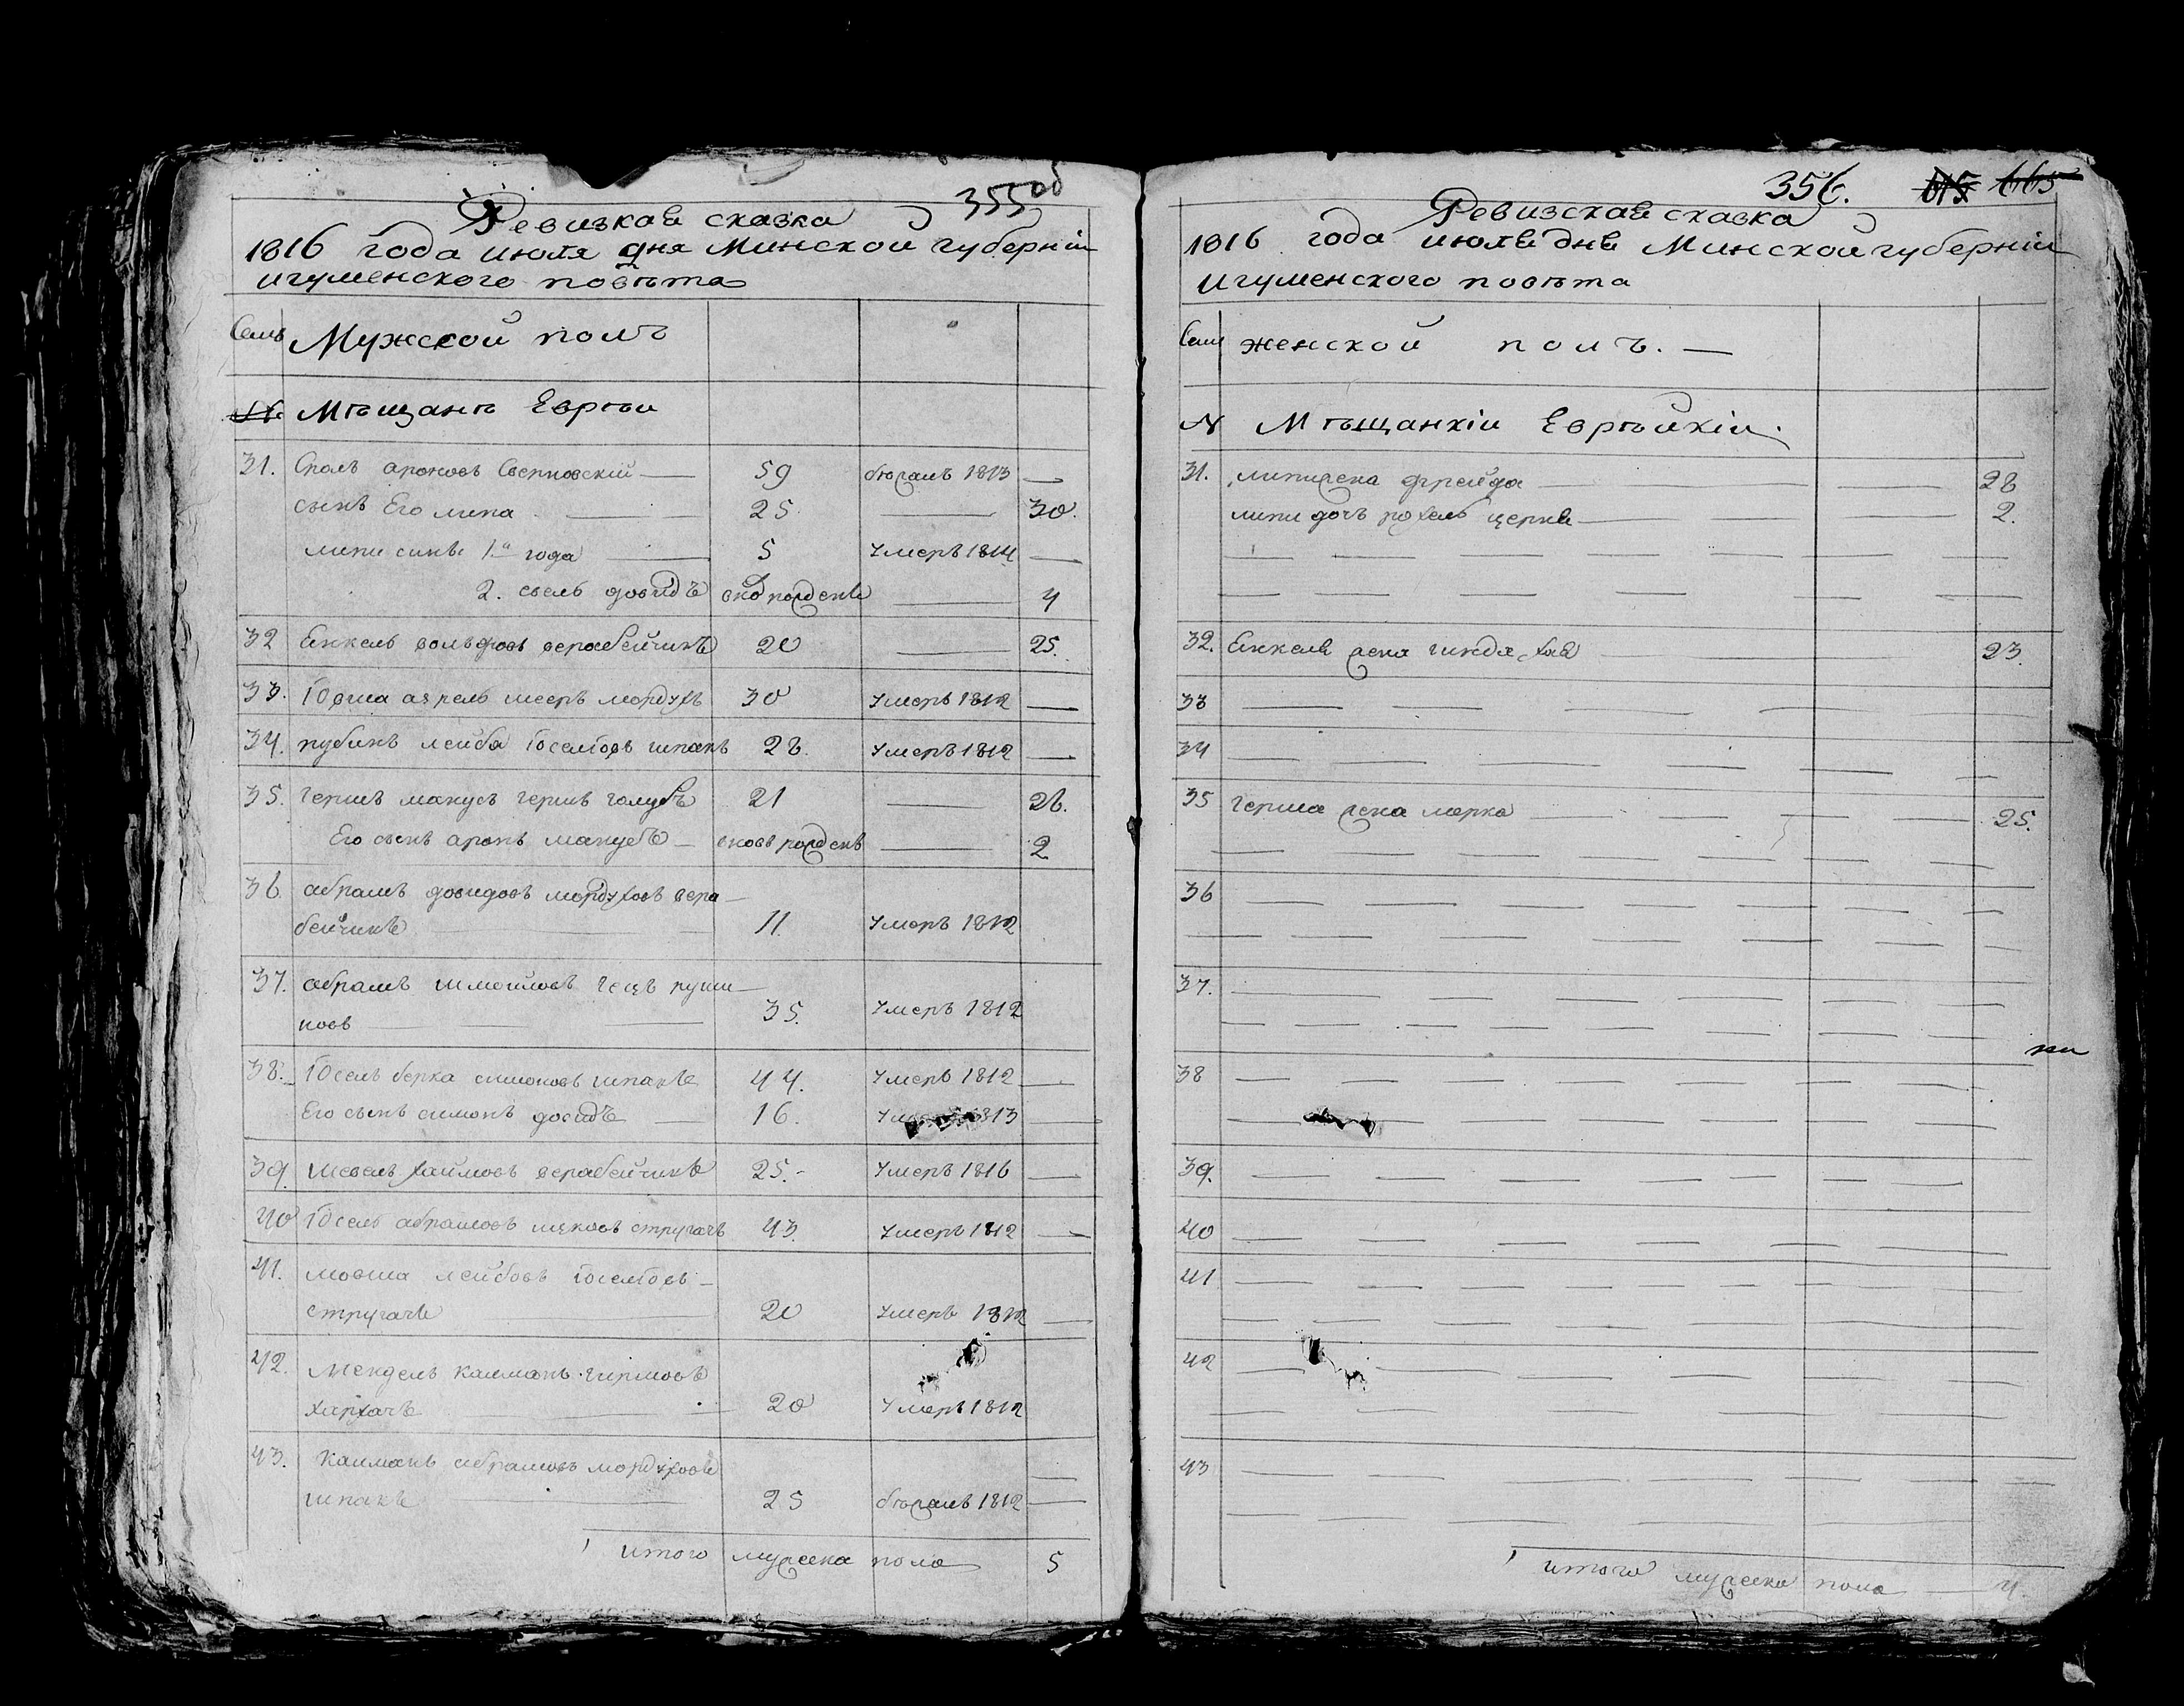 355 об
Ревизкая сказка
1816 года июля дня Минской губерніи
игуменского повѣта
Семь Мужеской полъ
№ Мѣщанъ Евреи
31. Сроль ароновъ Сверновскій — 59 бѣжалъ 1813 —
сынъ Его липа — 25 — 30.
липи синъ 1.й года — 5 Умеръ 1814 —
2. сынъ довидъ вновь рожденъ — 4
32 Енкель вольфовъ верабейчикъ 20 — 25.
33. Іовша азрель мееръ мордухъ 30 Умеръ 1812 —
34. рубинъ лейба Іоселіовъ шпакъ 28. Умеръ 1812 —
35. гершъ манусъ гершъ голубъ 21 — 26.
Его сынъ аронъ манусъ — вновь рожденъ — 2
36 абрамъ довидовъ мордуховъ вера-
бейчикъ — 11. Умеръ 1812
37. абрамъ шмойловъ рупи-
новъ — 35. Умеръ 1812
38. Іосель берка симоновъ шпакъ 44. Умеръ 1812 —
Его сынъ симонъ довидъ 16. 1813 —
39. шевель хаимовъ верабейчикъ 25. - Умеръ 1816 —
40 Іосель абрамовъ стругачъ 43. Умеръ 1812 —
41. мовша лейбовъ Іоселіовъ —
стругачъ — 20 Умеръ 1812 —
42. Мендель калманъ гиршовъ
хархачъ — 20 Умеръ 1812
43. Калманъ абрамовъ мордуховъ —
шпакъ — 25 бѣжалъ 1812 —
итого мужеска пола 5
356. 615 665
Ревизская сказка
1816 года июля дня Минской губерніи
игуменского повѣта
Семи женской полъ. —
№ Мѣщанкіи Еврейкіи.
31. липи жена фрейда — 28
липи дочъ рохель церне — 2.
32. Енкеля жена гинда хая — 23.
33
34
35 герша жена мерка — 25.
36
37.
38
39.
40
41
42
43
итого мужеска пола — 4.